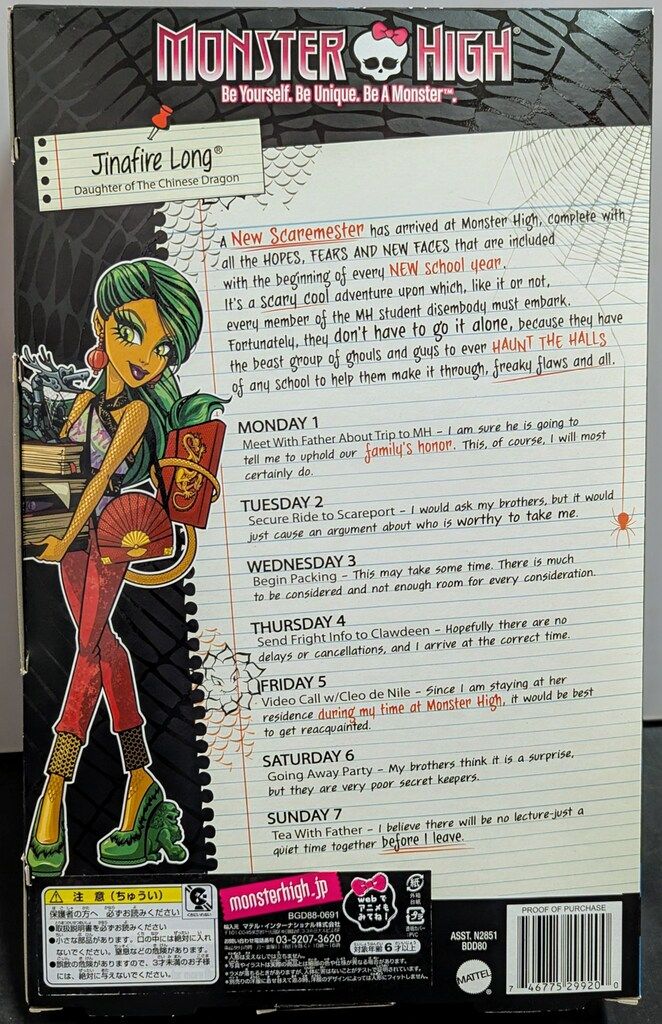 MONSTER HIGH®
Be Yourself. Be Unique. Be A Monster™.
Jinafire Long®
Daughter of The Chinese Dragon
A New Scaremester has arrived at Monster High, complete with
all the HOPES, FEARS AND NEW FACES that are included
with the beginning of every NEW school year.
It's a scary cool adventure upon which, like it or not,
every member of the MH student disembody must embark.
Fortunately, they don't have to go it alone, because they have
the beast group of ghouls and guys to ever HAUNT THE HALLS
of any school to help them make it through, freaky flaws and all.
MONDAY 1
Meet With Father About Trip to MH – I am sure he is going to
tell me to uphold our family's honor. This, of course, I will most
certainly do.
TUESDAY 2
Secure Ride to Scareport – I would ask my brothers, but it would
just cause an argument about who is worthy to take me.
WEDNESDAY 3
Begin Packing – This may take some time. There is much
to be considered and not enough room for every consideration.
THURSDAY 4
Send Fright Info to Clawdeen – Hopefully there are no
delays or cancellations, and I arrive at the correct time.
FRIDAY 5
Video Call w/Cleo de Nile – Since I am staying at her
residence during my time at Monster High, it would be best
to get reacquainted.
SATURDAY 6
Going Away Party – My brothers think it is a surprise,
but they are very poor secret keepers.
SUNDAY 7
Tea With Father – I believe there will be no lecture-just a
quiet time together before I leave.
注 意 (ちゅうい)
保護者の方へ 必ずお読みください
●取扱説明書を必ずお読みください。
●小さな部品があります。口の中には絶対に入れ
ないでください。窒息などの危険があります。
●誤飲の危険がありますので、3才未満のお子様
には、絶対に与えないでください。
monsterhigh.jp
BGD88-0691
輸入元 マテル・インターナショナル株式会社
お問い合わせ電話番号 03-5207-3620
webで
アニメも
みてね!
紙
外箱
台紙
プラ
対象年齢 6才以上
PROOF OF PURCHASE
ASST. N2851
BDD80
MATTEL
7 46775 29920 0